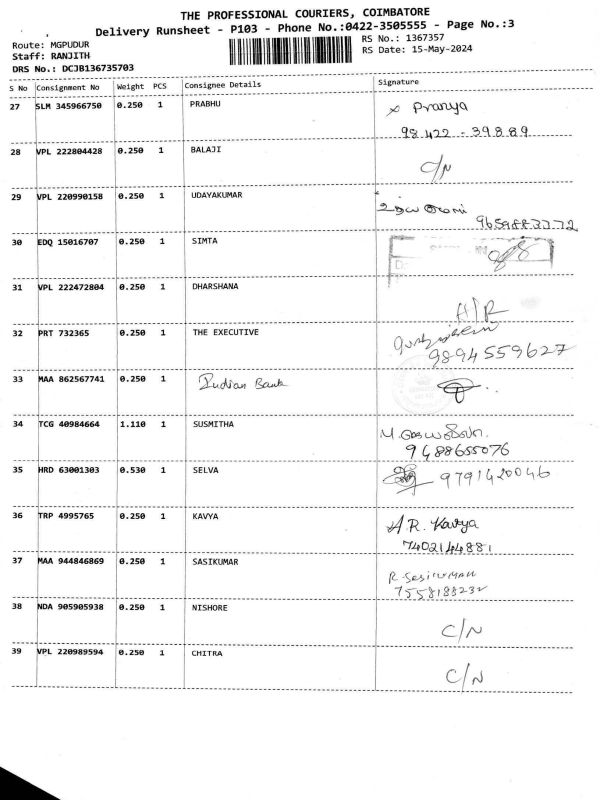 THE PROFESSIONAL COURIERS, COIMBATORE
Delivery Runsheet - P103 - Phone No.:0422-3505555 - Page No.:3
Route: MGPUDUR
RS No.: 1367357
Staff: RANJITH
RS Date: 15-May-2024
DRS No.: DCJB136735703
S No Consignment No Weight PCS Consignee Details Signature
27 SLM 345966750 0.250 1 PRABHU x Pranya
98422-39889
28 VPL 222804428 0.250 1 BALAJI C/N
29 VPL 220990158 0.250 1 UDAYAKUMAR
9659883772
30 EDQ 15016707 0.250 1 SIMTA
31 VPL 222472804 0.250 1 DHARSHANA
A/R
32 PRT 732365 0.250 1 THE EXECUTIVE
9894559627
33 MAA 862567741 0.250 1 Indian Bank
34 TCG 40984664 1.110 1 SUSMITHA
9488655076
35 HRD 63001303 0.530 1 SELVA 9791420046
36 TRP 4995765 0.250 1 KAVYA A.R. Kavya
7402144881
37 MAA 944846869 0.250 1 SASIKUMAR R.SasikUMAR
7558188232
38 NDA 905905938 0.250 1 NISHORE C/N
39 VPL 220989594 0.250 1 CHITRA C/N